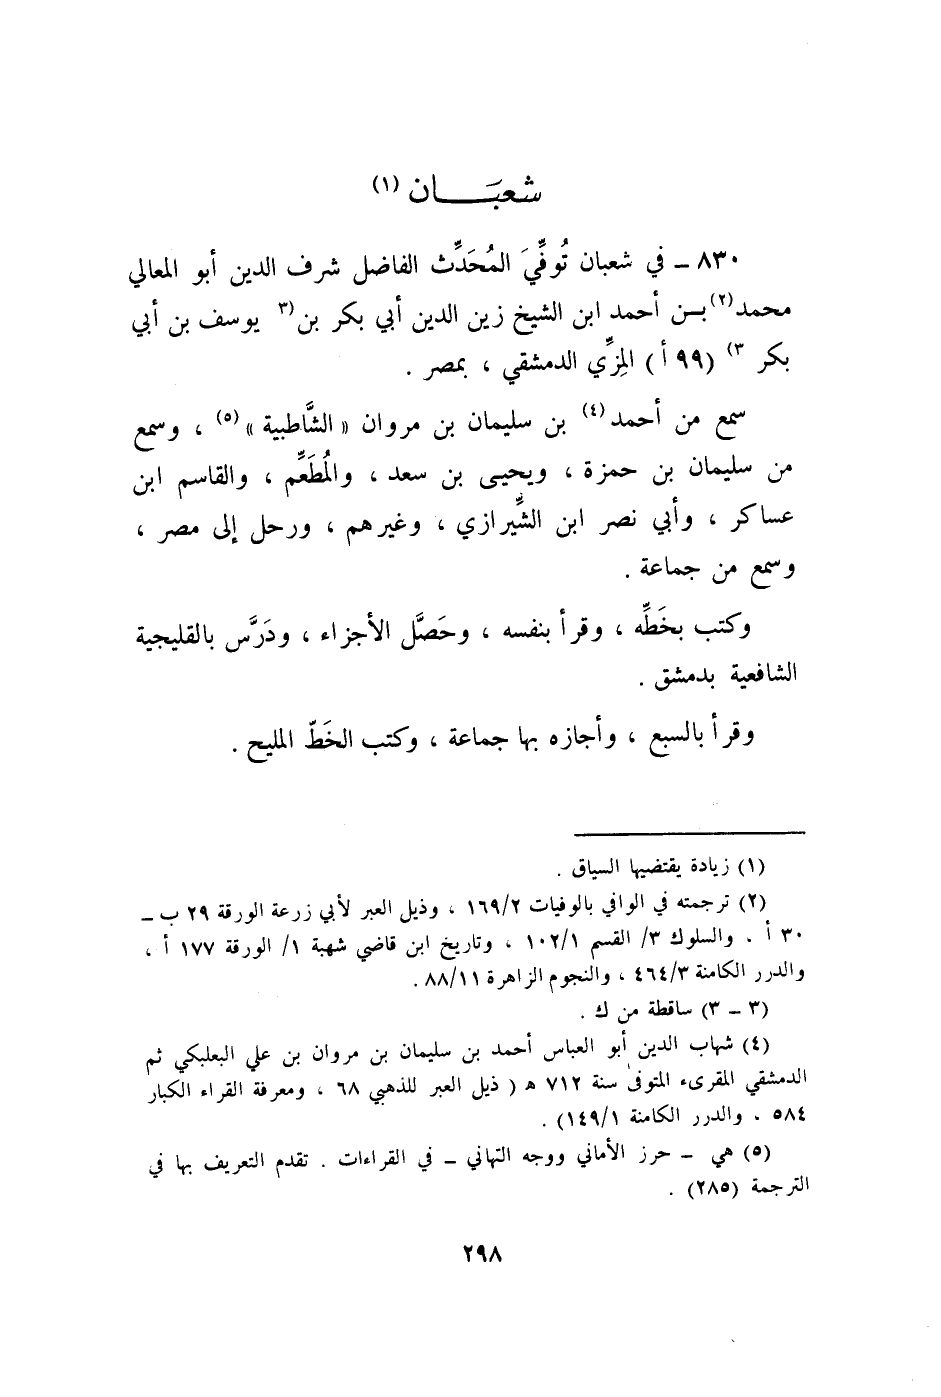 شعبـــــان (١)
٨٣٠ ـ في شعبان تُوفِّيَ المُحَدِّث الفاضل شرف الدين أبو المعالي
محمد(٢) بـن أحمد ابن الشيخ زين الدين أبي بكر بن(٣ يوسف بن أبي
بكر ٣) (٩٩ أ) المِزِّي الدمشقي ، بمصر .
سمع من أحمد(٤) بن سليمان بن مروان « الشَّاطبية »(٥) ، وسمع
من سليمان بن حمزة ، ويحيى بن سعد ، والمُطَعِّم ، والقاسم ابن
عساكر ، وأبي نصر ابن الشِّيرازي ، وغيرهم ، ورحل إلى مصر ،
وسمع من جماعة .
وكتب بخَطِّه ، وقرأ بنفسه ، وحَصَّل الأجزاء ، ودَرَّس بالقليجية
الشافعية بدمشق .
وقرأ بالسبع ، وأجازه بها جماعة ، وكتب الخَطّ المليح .
(١) زيادة يقتضيها السياق .
(٢) ترجمته في الوافي بالوفيات ١٦٩/٢ ، وذيل العبر لأبي زرعة الورقة ٢٩ ب ـ
٣٠ أ . والسلوك ٣/ القسم ١٠٢/١ ، وتاريخ ابن قاضي شهبة ١/ الورقة ١٧٧ أ ،
والدرر الكامنة ٤٦٤/٣ ، والنجوم الزاهرة ٨٨/١١ .
(٣ ـ ٣) ساقطة من ك .
(٤) شهاب الدين أبو العباس أحمد بن سليمان بن مروان بن علي البعلبكي ثم
الدمشقي المقرىء المتوفىٰ سنة ٧١٢ ه ( ذيل العبر للذهبي ٦٨ ، ومعرفة القراء الكبار
٥٨٤ . والدرر الكامنة ١٤٩/١) .
(٥) هي ـ حرز الأماني ووجه التهاني ـ في القراءات . تقدم التعريف بها في
الترجمة (٢٨٥) .
٢٩٨